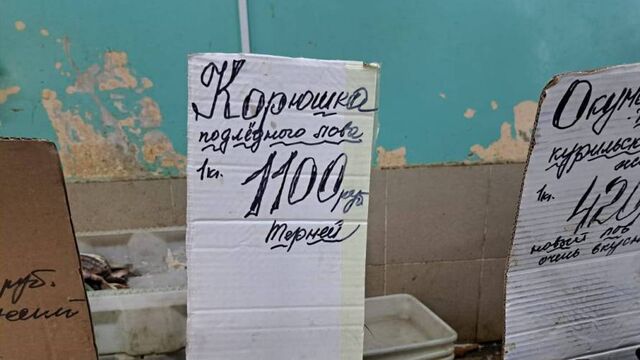 Корюшка
подлёдного лова
1кг. 1100 руб
Терней
Окунь
курильск
1кг. 420
новый лов
очень вкусн
руб.